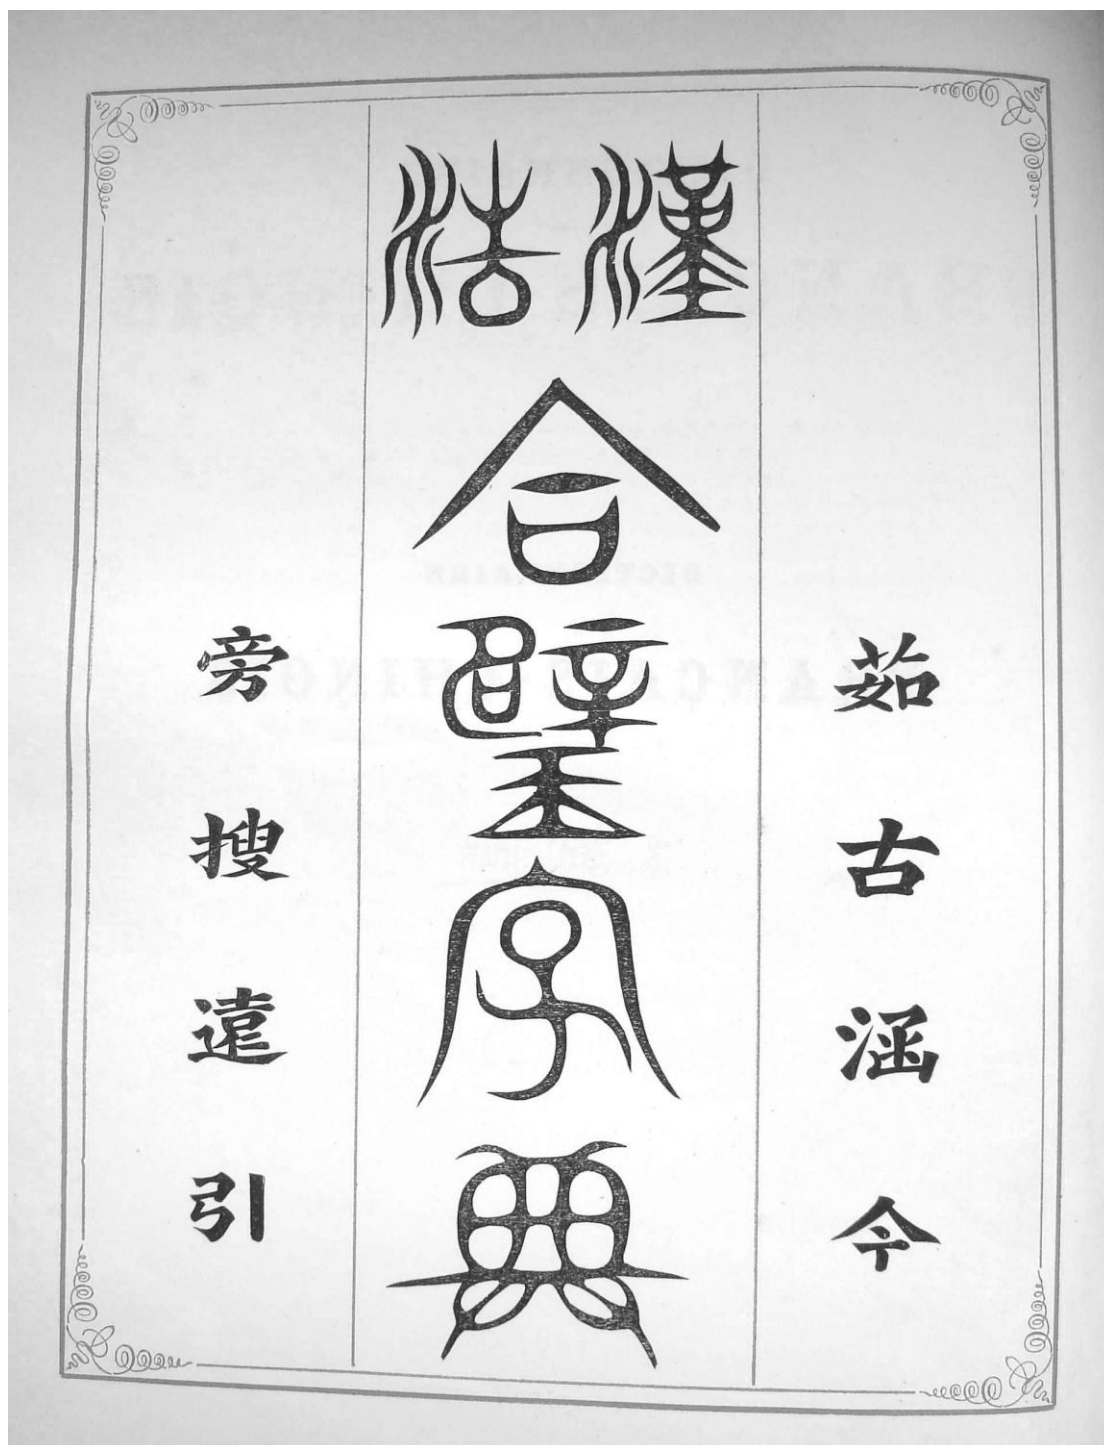 茹古涵今
漢法
合璧字典
旁搜遠引